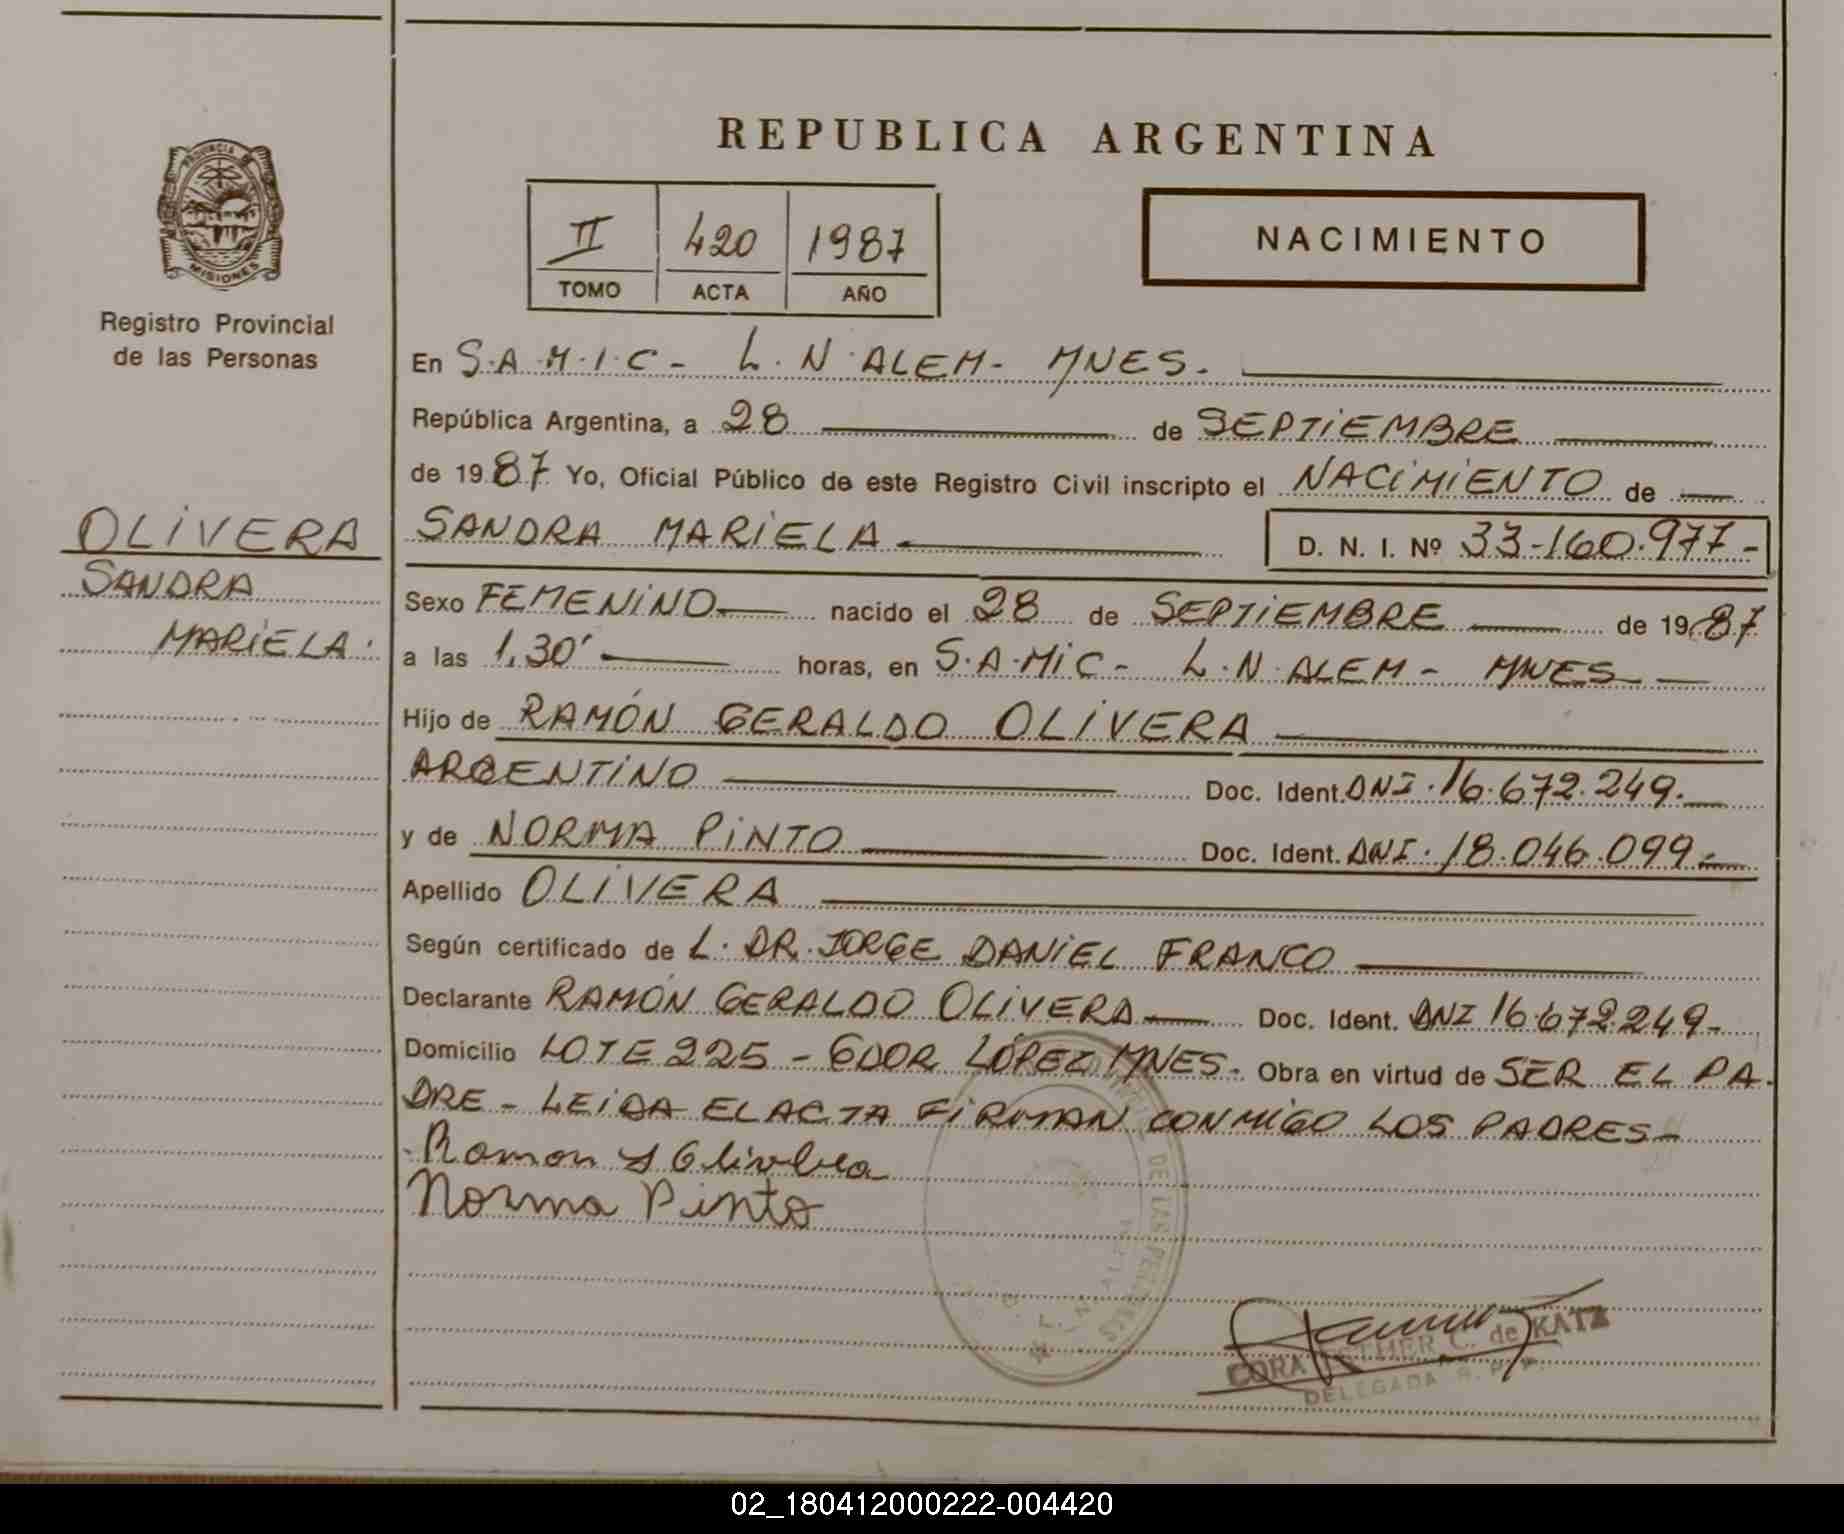 REPUBLICA ARGENTINA
PROVINCIA
MISIONES
Registro Provincial
de las Personas
II 420 1987
TOMO ACTA AÑO
NACIMIENTO
OLIVERA
SANDRA
MARIELA.
En S.A.M.I.C - L.N. ALEM - MNES.
República Argentina, a 28 de SEPTIEMBRE
de 1987 Yo, Oficial Público de este Registro Civil inscripto el NACIMIENTO de
SANDRA MARIELA D. N. I. Nº 33-160.977-
Sexo FEMENINO nacido el 28 de SEPTIEMBRE de 1987
a las 1,30' horas, en S.A.MIC - L.N. ALEM - MNES
Hijo de RAMÓN GERALDO OLIVERA
ARGENTINO Doc. Ident. DNI. 16.672.249.
y de NORMA PINTO Doc. Ident. DNI. 18.046.099.
Apellido OLIVERA
Según certificado de L. DR. JORGE DANIEL FRANCO
Declarante RAMÓN GERALDO OLIVERA Doc. Ident. DNI 16.672.249-
Domicilio LOTE 225 - GDOR LÓPEZ MNES. Obra en virtud de SER EL PA-
DRE - LEIDA EL ACTA FIRMAN CONMIGO LOS PADRES-
Ramon
Norma Pinto
DE LAS PERSONAS
CORA ESTHER C. de KATZ
DELEGADA R. P. P.
02_180412000222-004420